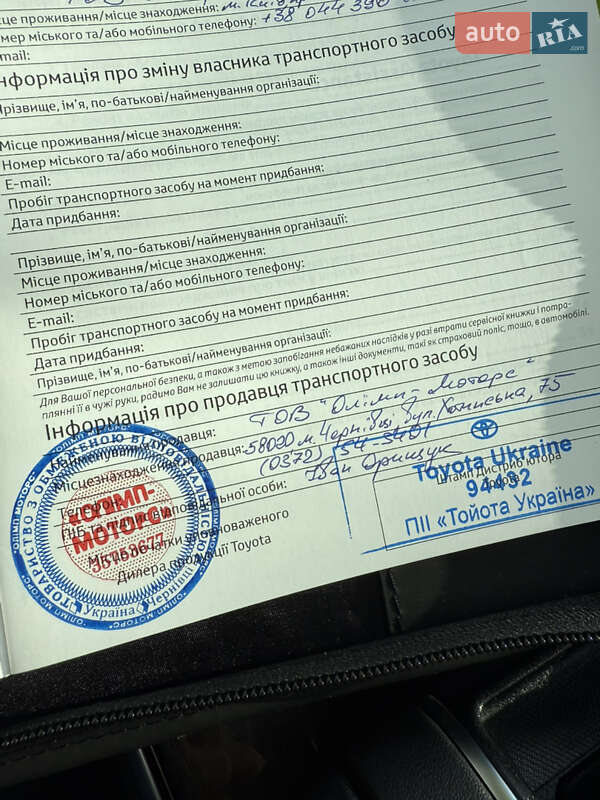 це проживання/місце знаходження: м. Київ
Номер міського та/або мобільного телефону: +38 044 390
mail:
Інформація про зміну власника транспортного засобу
Прізвище, ім'я, по-батькові/найменування організації:
Місце проживання/місце знаходження:
Номер міського та/або мобільного телефону:
E-mail:
Пробіг транспортного засобу на момент придбання:
Дата придбання:
Прізвище, ім'я, по-батькові/найменування організації:
Місце проживання/місце знаходження:
Номер міського та/або мобільного телефону:
E-mail:
Пробіг транспортного засобу на момент придбання:
Дата придбання:
Прізвище, ім'я, по-батькові/найменування організації:
Для Вашої персональної безпеки, а також з метою запобігання небажаних наслідків у разі втрати сервісної книжки і потра-
плянні її в чужі руки, радимо Вам не залишати цю книжку, а також інші документи, такі як страховий поліс, тощо, в автомобілі.
Інформація про продавця транспортного засобу
Найменування продавця: ТОВ "Олімп-Моторс"
Місцезнаходження продавця: 58000 м. Чернівці вул. Хотинська, 75
Телефон: (0372) 54-3401
відповідальної особи: Іван
Місце печатки уповноваженого
Дилера продукції Toyota
Штамп Дистриб'ютора
Toyota
Toyota Ukraine
94492
ПІІ «Тойота Україна»
ТОВАРИСТВО З ОБМЕЖЕНОЮ ВІДПОВІДАЛЬНІСТЮ
«ОЛІМП-
МОТОРС»
Україна Чернівці
"ОЛІМП МОТОРС"
auto RIA .com